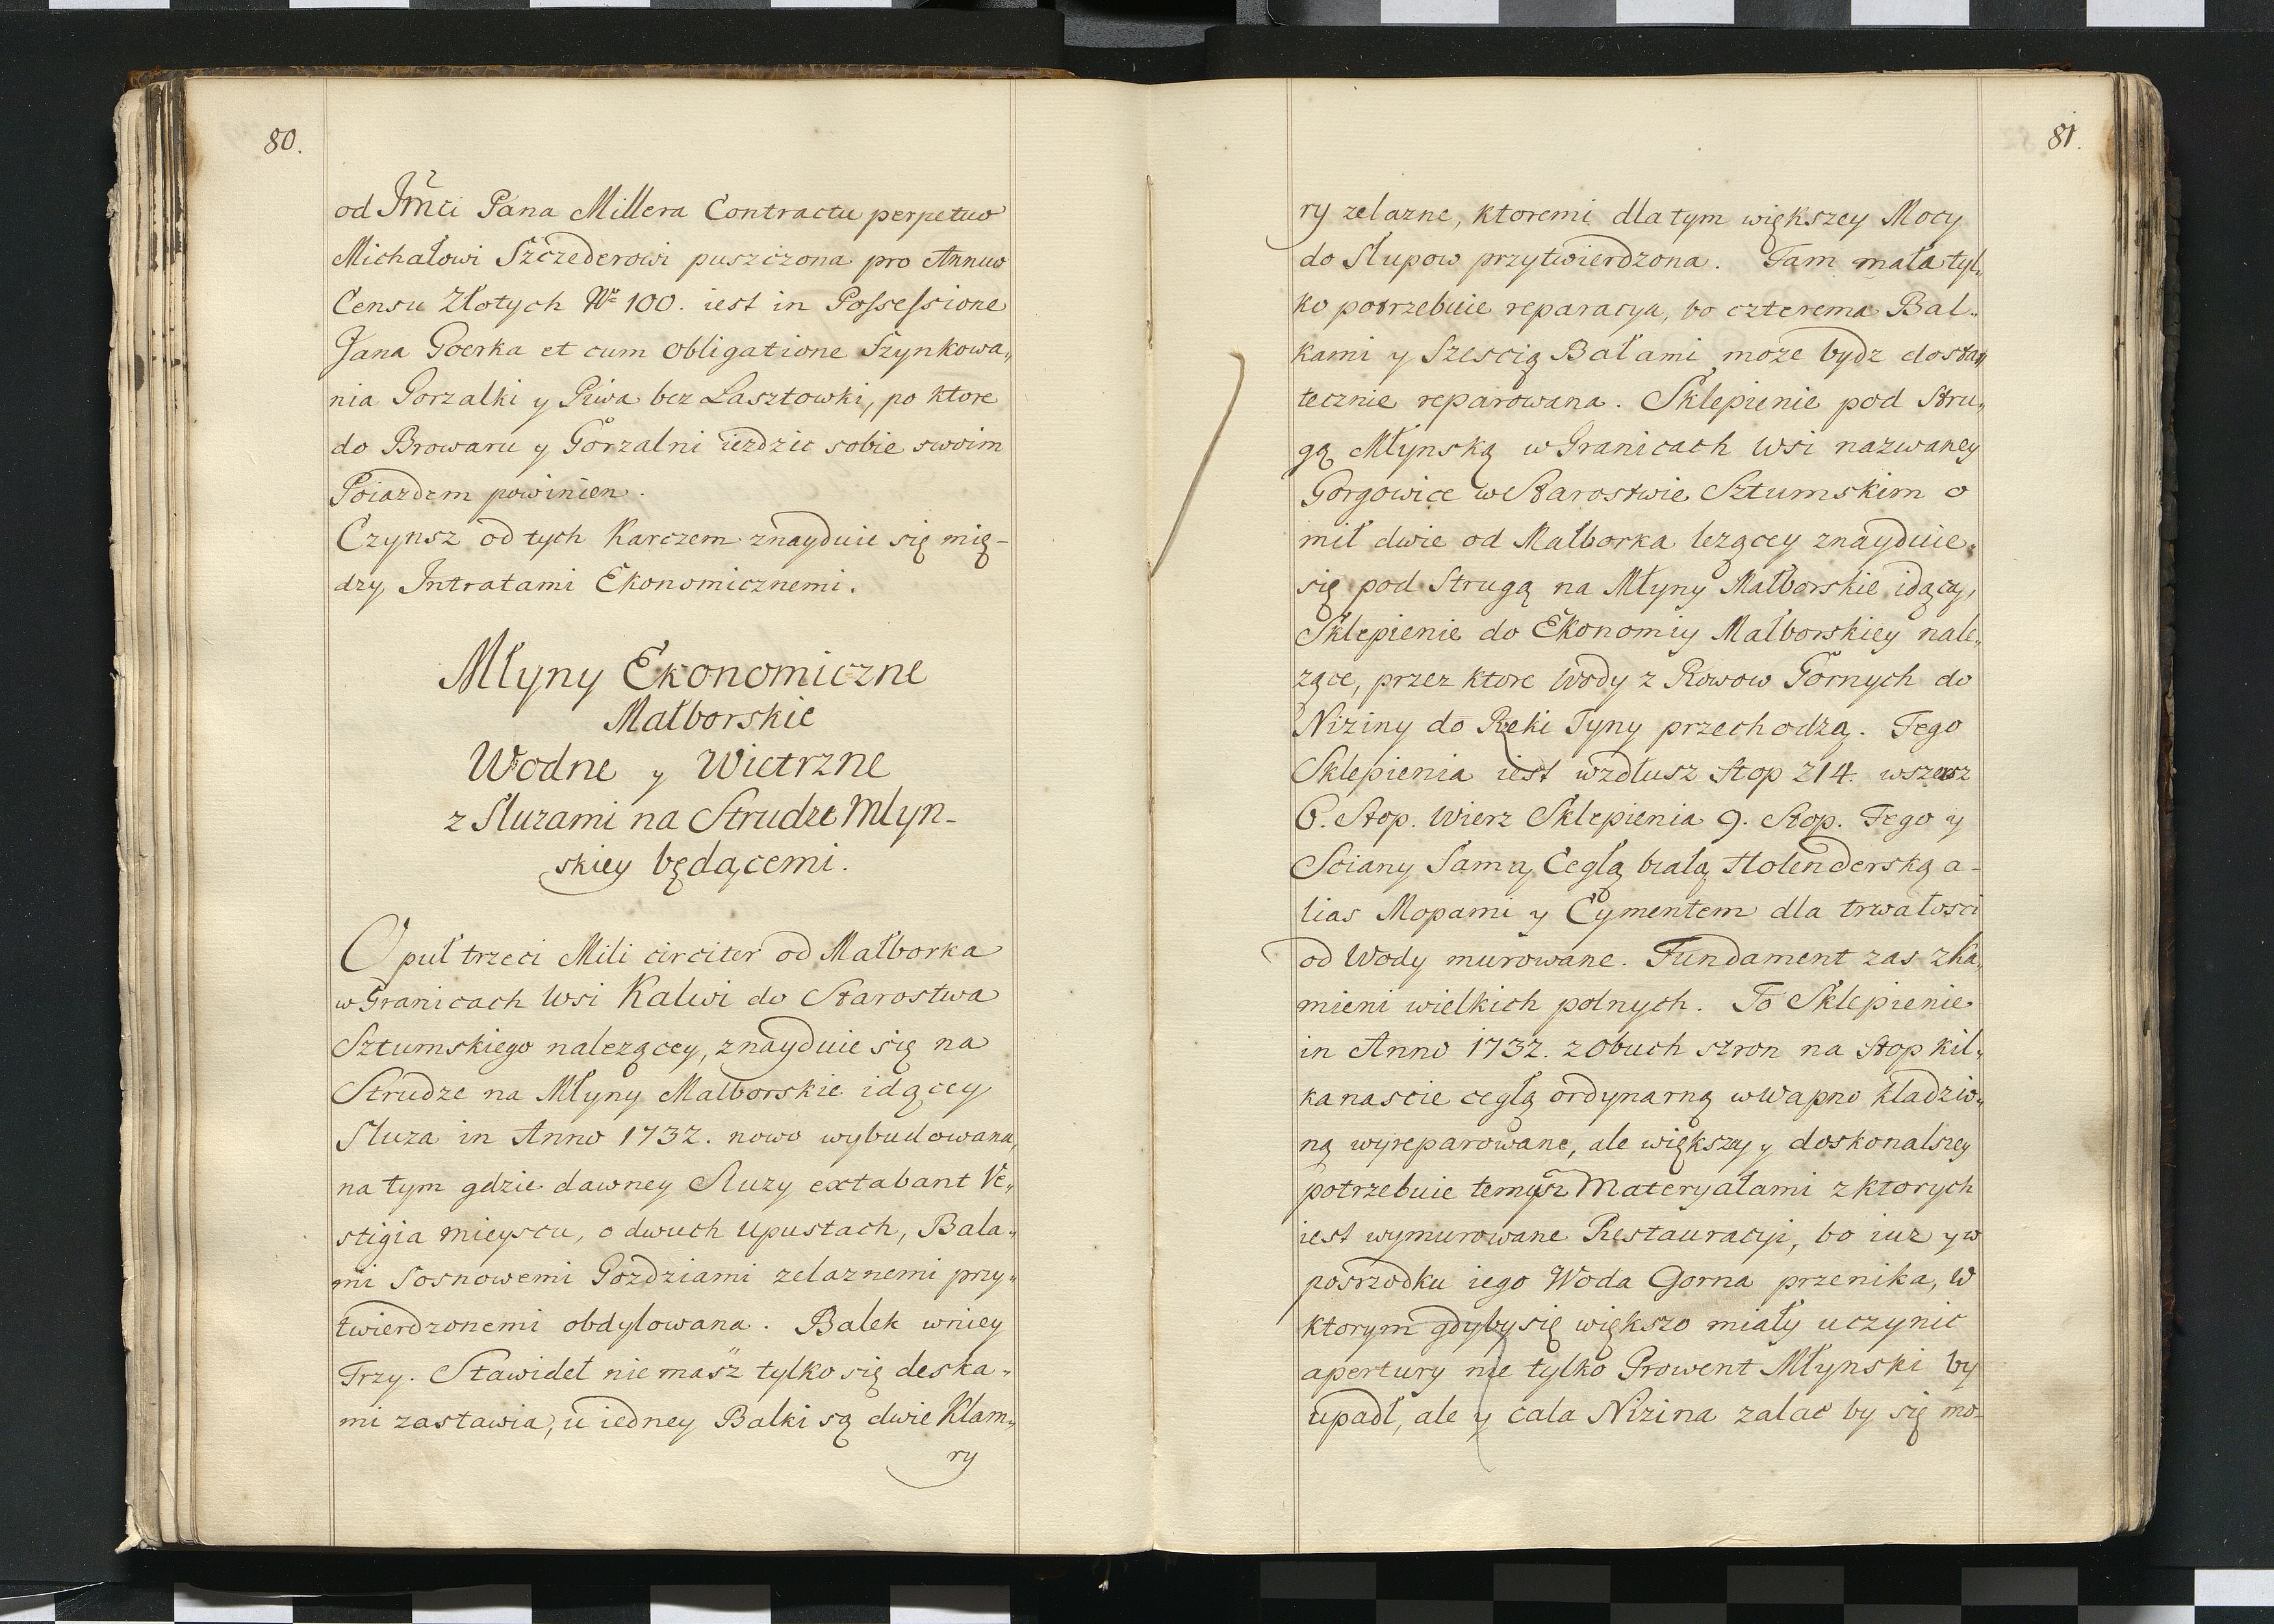 80.
od Jmci Pana Millera Contractu perpetuo
Michałowi Szczederowi puszczona pro Annuo
Censu Złotych Nro 100. iest in Possessione
Jana Goerka et cum obligatione Szynkowa„
nia Gorzalki y Piwa bez Lasztowki, po ktore
do Browaru y Gorzalni iezdzic sobie swoim
Poiazdem powinien.
Czynsz od tych Karczem znayduie się mię-
dzy Intratami Ekonomicznemi.
Młyny Ekonomiczne
Małborskie
Wodne y Wietrzne
z Sluzami na Strudze Mlyn-
skiey będącemi.
O puł trzeci Mili circiter od Małborka
w Granicach Wsi Kalwi do Starostwa
Sztumskiego nalezącey, znayduie się na
Strudze na Młyny Malborskie idącey
Sluza in Anno 1732. nowo wybudowana,
na tym gdzie dawney Sluzy extabant Ve„
stigia mieyscu, o dwuch Upustach, Bala„
mi Sosnowemi Gozdziami zelaznemi przy„
twierdzonemi obdylowana. Balek wniey
Trzy. Stawideł nie masz tylko się deska„
mi zastawia, u iedney Balki są dwie Klam„
ry
81.
ry zelazne, ktoremi dla tym większey Mocy
do Słupow przytwierdzona. Tam mała tyl„
ko potrzebuie reparacya, bo czterema Bal„
kami y Szescią Bałami może bydz dosta„
tecznie reparowana. Sklepienie pod Stru„
gą Młynską w Granicach Wsi nazwaney
Gorgowice w Starostwie Sztumskim o
mil dwie od Małborka lezącey znayduie
się pod Strugą na Młyny Małborskie idący,
Sklepienie do Ekonomiy Małborskiey nale„
zące, przez ktore Wody z Rowow Gornych do
Niziny do Rzeki Tyny przechodzą. Tego
Sklepienia iest wzdłusz Stop 214. wszersz
6. Stop. Wierz Sklepienia 9. Stop. Tego y
Sciany Samy Cegłą białą Holenderską a-
lias Mopami y Cymentem dla trwałosci
od Wody murowane. Fundament zas zka„
mieni wielkich polnych. To Sklepienie
in Anno 1732. z obuch stron na Stop kil„
kanascie cegłą ordynarną w Wapno kladzio„
ną wyreparowane, ale większey y doskonalszey
potrzebuie temysz Materyałami z ktorych
iest wymurowane Restauracyi, bo iuz y w
posrzodku iego Woda Gorna przenika, w
ktorym gdyby się większo miały uczynic
apertury nie tylko Prowent Młynski by
upadł, ale y cala Nizina zalac by się mo-